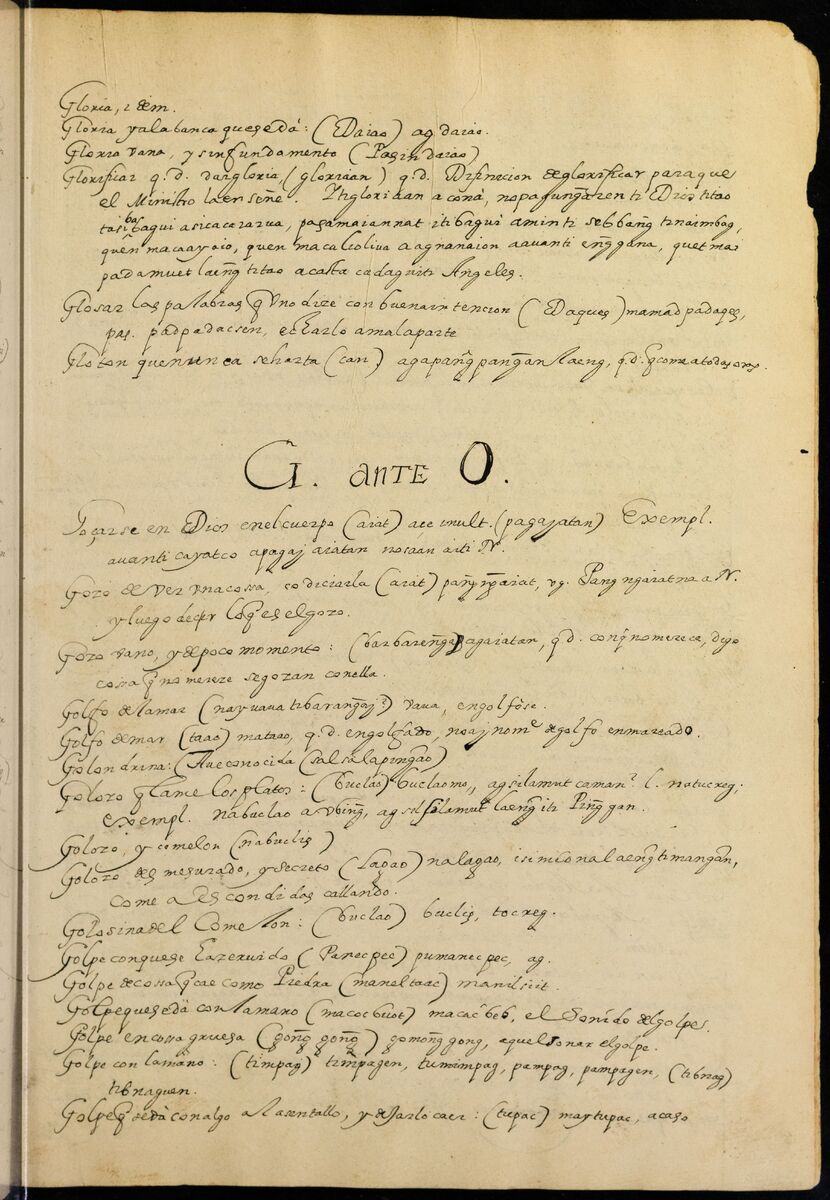 Gloria, idem.
Gloria yalabança quese dà: (Daiao) ag daiao.
Gloria vana, y sinfundamento (Pagindaiao)
Glorificar q.d. dar gloria (gloriaan) q.d. Difinicion deglorificar paraque
el Ministro la enseñe. Itigloriaan a conà, no pagunḡaren ti Dios titao
asicacararua, pagamaiannat itibagui aminti
quen macaayaio, quen aagnanaion aavanti enḡgana, quet mai
padamuet laenḡ titao acasta cadaguiti Angeles.
Glosar las palabras q̃ vno dize con buenaintencion (Daques) mamadpadaqes,
pag. padpadacsen, echarlo amalaparte
Gloton quenunca seharta (can) agapanḡpanḡan laeng, q.d. q̃ come atodas oras.
G. ante O.
Goçarse en Dios enelcuerpo (aiat) (pagajatan) Exempl.
avanti cayatco apagajaiatan nosaan aiti N.
Gozo de ver vnacossa, codiciarla (aiat) vg. Pang ngaiatna a N.
y luego deçir loq̃ es el gozo.
Gozo vano, y depoco momento: (barbarenḡapagaiatan, q.d. conq̃ nomerece, digo
cossa q̃ no mereze segozan conella.
Golfo delamar (nayvava tibaranḡaj) vava, engolfòse.
Golfo demar (taao) mataao, q.d. engolfado, noaj nome de golfo enmareado.
Golondrina: (Aue conocida (salsalapinḡao)
Golozo q̃ lame los platos: (buclao) buclaomo, agsilamut caman l. natucreg;
exempl. nabuclao a vbinḡ, laenḡ iti Pinḡgan.
Golozo, y comelon (nabuclis)
Golozo desmesurado, y secreto (Lagao) nalagao, laenḡ timangan,
come a escondidas callando.
Golosina del Comelon: (buclao) buclis, tocreg.
Golpe conquese hazeruido (Panecpec) pumanecpec, ag.
Golpe decossa q̃ cae como Piedra (maneltaac) manilsiit.
Golpe quese dà con lamano (macocbuot) macacbeb, el Sonido delgolpes.
Golpe en cossa gruesa (gonḡgonḡ) gomonḡgong, aquel sonar elgolpe.
Golpe con lamano: (timpag) timpagen, tumimpag, pampag, pampagen, (tibnag)
tibnaguen.
Golpe q̃ sedà con algo alasentallo, y dejarlo caer: (tupac) maytupac, acaso